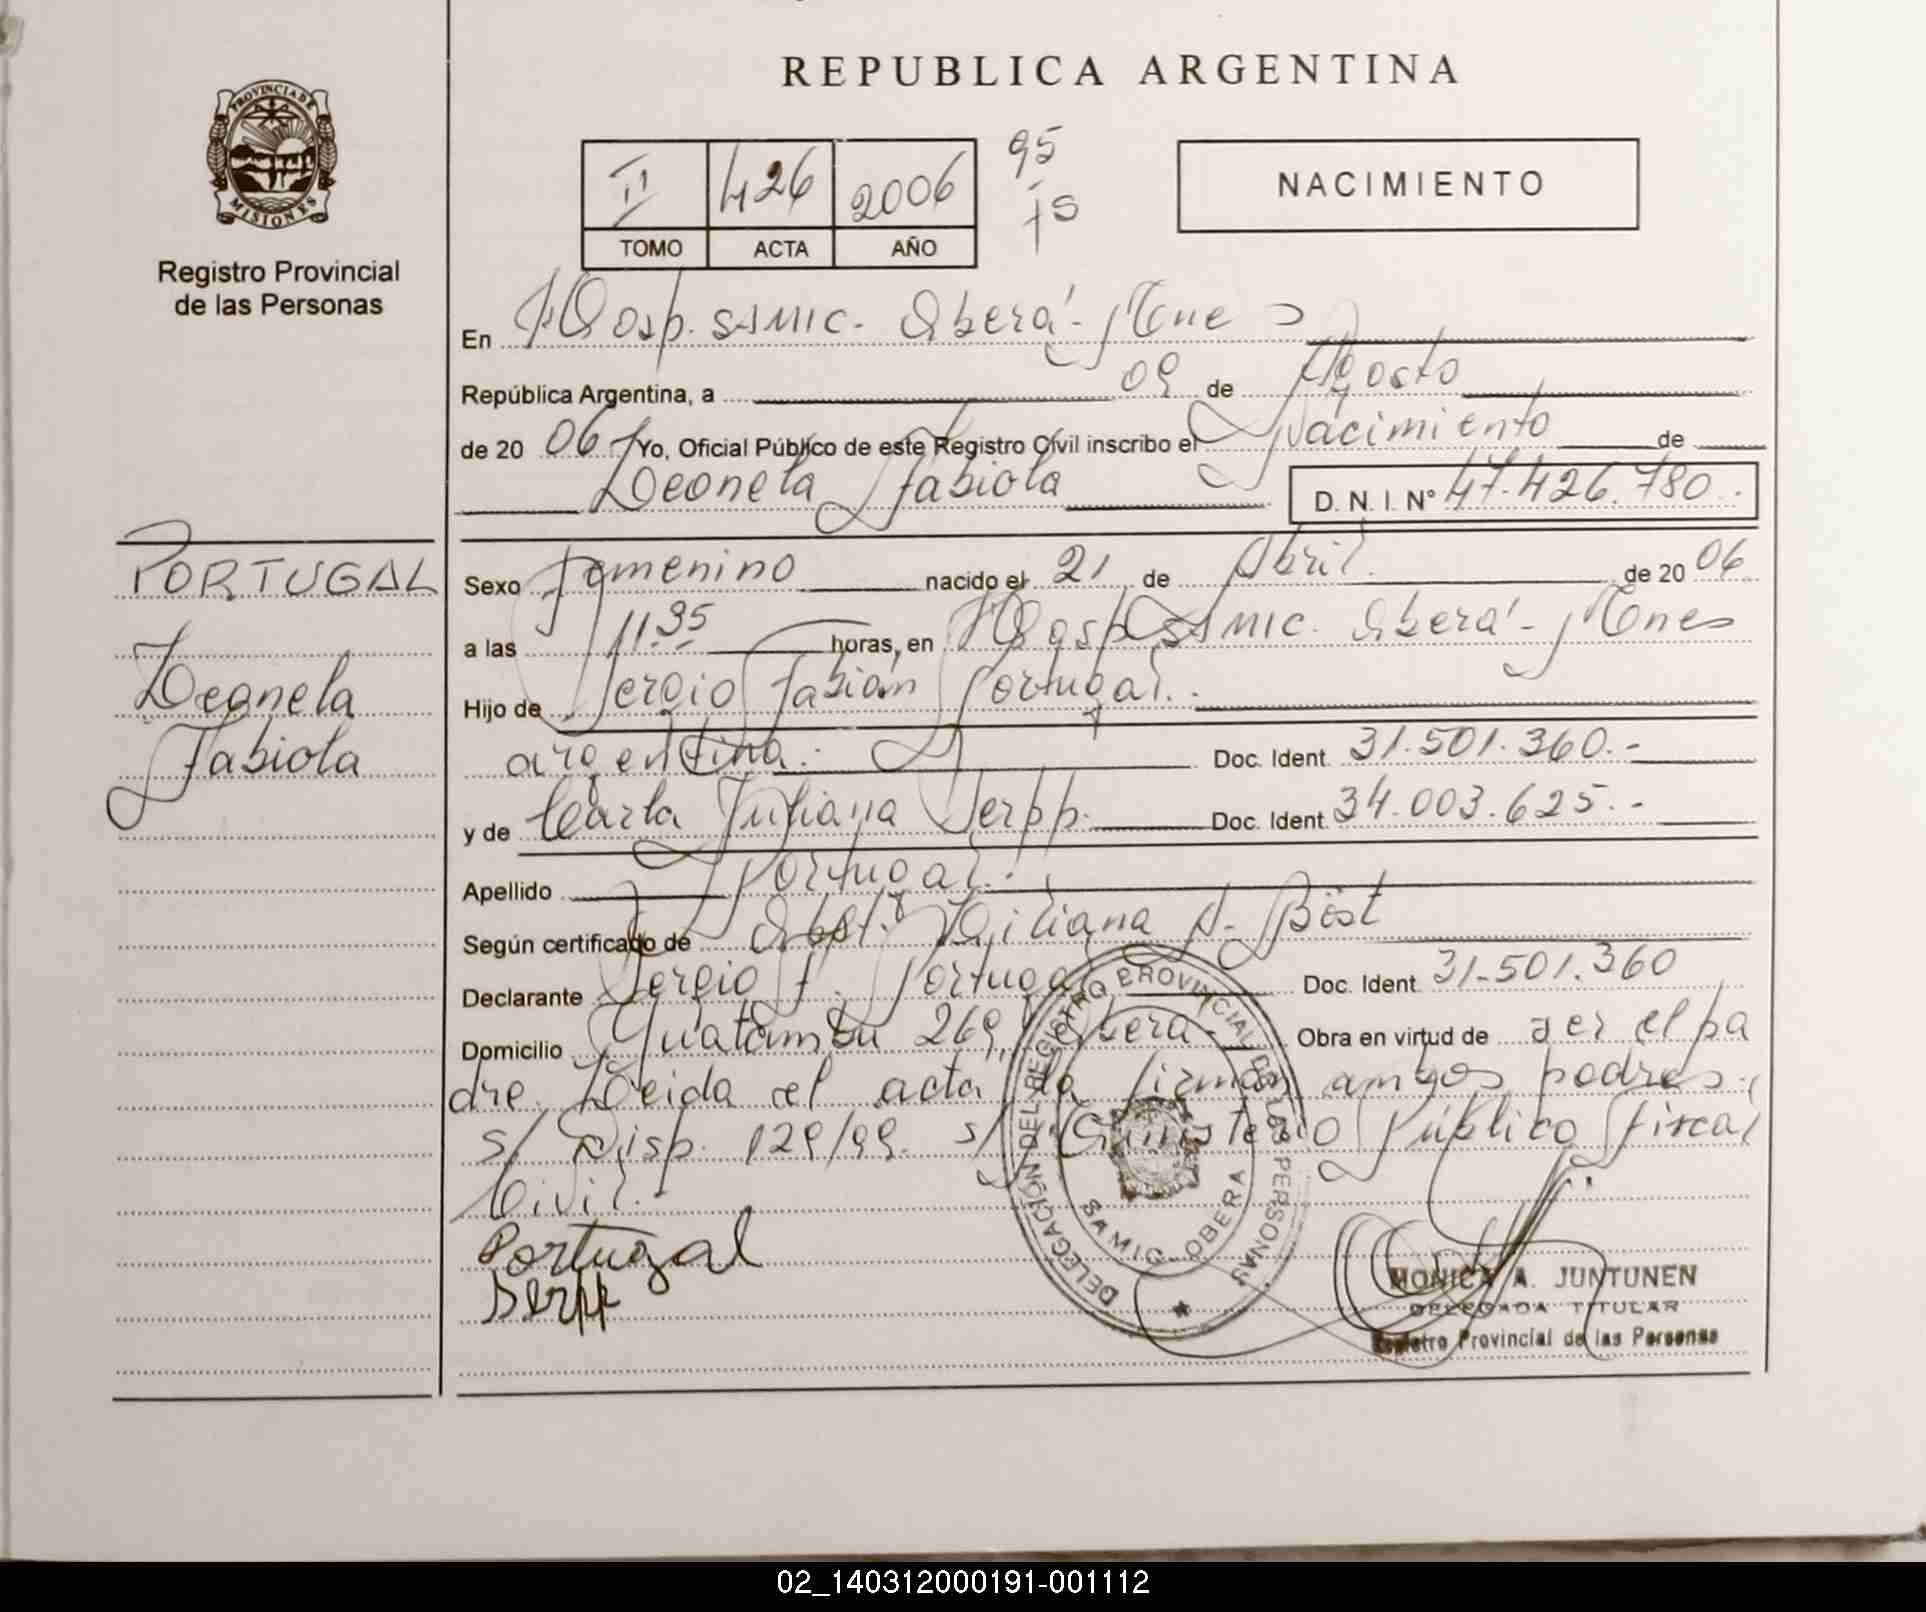 REPUBLICA ARGENTINA
PROVINCIA DE
MISIONES
Registro Provincial
de las Personas
II 426 2006
TOMO ACTA AÑO
95
NACIMIENTO
En Hosp. SAMIC. Oberá - Mnes
República Argentina, a 09 de Agosto
de 20 06 Yo, Oficial Público de este Registro Civil inscribo el Nacimiento de
Leonela Fabiola
D. N. I. Nº 47.426.780.
PORTUGAL
Leonela
Fabiola
Sexo femenino nacido el 21 de Abril. de 20 06
a las 11.35 horas, en Hosp. SAMIC. Oberá - Mnes
Hijo de Sergio Fabián Portugal.
argentina. Doc. Ident. 31.501.360.-
y de Carla Juliana Serpp. Doc. Ident. 34.003.625.-
Apellido Portugal.
Según certificado de Obst. Viliana A. Bist
Declarante Sergio F. Portugal Doc. Ident. 31.501.360
Domicilio Guatambu 269, Oberá. Obra en virtud de ser el pa
dre. Leida el acta la firman ambos padres.
s/ Disp. 129/99. s/ Ministerio Público Fiscal
Civil.-
Portugal
Serpp
DELEGACIÓN DEL REGISTRO PROVINCIAL DE LAS PERSONAS
SAMIC - OBERA
MONICA A. JUNTUNEN
DELEGADA TITULAR
Registro Provincial de las Personas
02_140312000191-001112